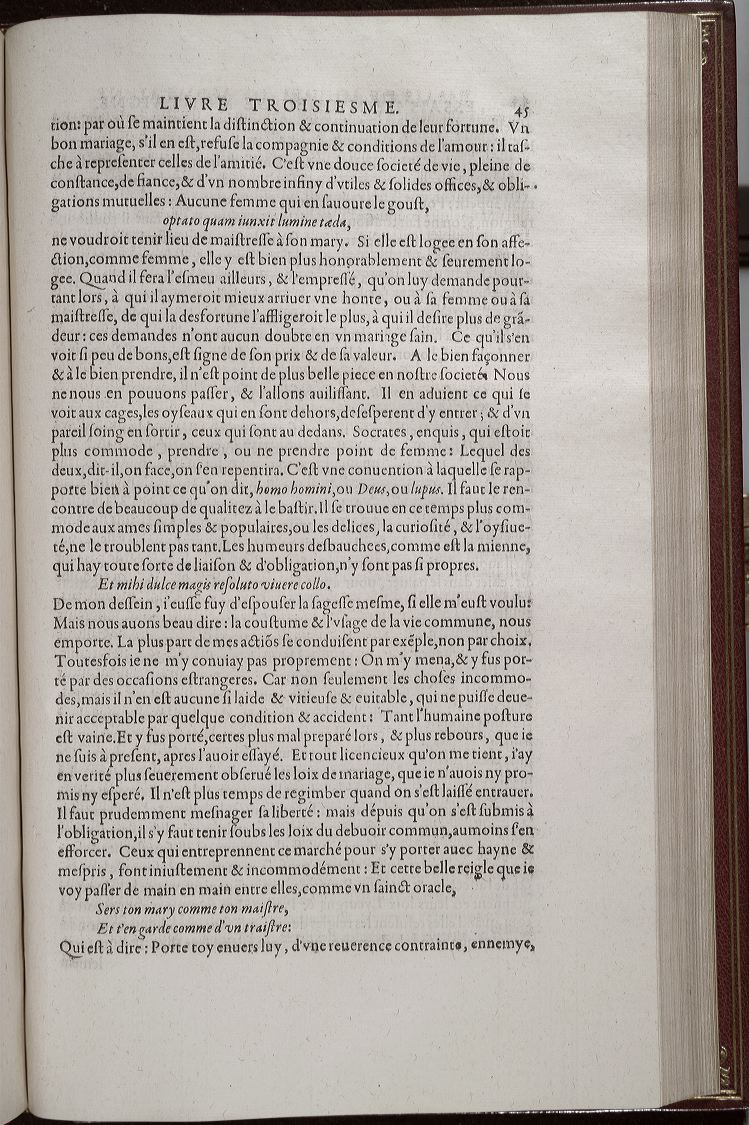 LIVRE TROISIESME. 45
tion: par où ſe maintient la diſtinction & continuation de leur fortune. Vn
bon mariage, s'il en eſt, refuſe la compagnie & conditions de l'amour: il taſ-
che à repreſenter celles de l'amitié. C'eſt vne douce ſocieté de vie, pleine de
conſtance, de fiance, & d'vn nombre infiny d'vtiles & ſolides offices, & obli-
gations mutuelles: Aucune femme qui en ſauoure le gouſt,
optato quam iunxit lumine tæda,
ne voudroit tenir lieu de maiſtreſſe à ſon mary. Si elle eſt logee en ſon affe-
ction, comme femme, elle y eſt bien plus honorablement & ſeurement lo-
gee. Quand il fera l'eſmeu ailleurs, & l'empreſſé, qu'on luy demande pour-
tant lors, à qui il aymeroit mieux arriuer vne honte, ou à ſa femme ou à ſa
maiſtreſſe, de qui la desfortune l'affligeroit le plus, à qui il deſire plus de grã-
deur: ces demandes n'ont aucun doubte en vn mariage ſain. Ce qu'il s'en
voit ſi peu de bons, eſt ſigne de ſon prix & de ſa valeur. A le bien façonner
& à le bien prendre, il n'eſt point de plus belle piece en noſtre ſocieté. Nous
ne nous en pouuons paſſer, & l'allons auiliſſant. Il en aduient ce qui ſe
voit aux cages, les oyſeaux qui en ſont dehors, deſeſperent d'y entrer; & d'vn
pareil ſoing en ſortir, ceux qui ſont au dedans. Socrates, enquis, qui eſtoit
plus commode, prendre, ou ne prendre point de femme: Lequel des
deux, dit-il, on face, on ſ'en repentira. C'eſt vne conuention à laquelle ſe rap-
porte bien à point ce qu'on dit, homo homini, ou Deus, ou lupus. Il faut le ren-
contre de beaucoup de qualitez à le baſtir. Il ſe trouue en ce temps plus com-
mode aux ames ſimples & populaires, ou les delices, la curioſité, & l'oyſiue-
té, ne le troublent pas tant. Les humeurs desbauchees, comme eſt la mienne,
qui hay toute ſorte de liaiſon & d'obligation, n'y ſont pas ſi propres.
Et mihi dulce magis reſoluto viuere collo.
De mon deſſein, i'euſſe fuy d'eſpouſer la ſageſſe meſme, ſi elle m'euſt voulu:
Mais nous auons beau dire: la couſtume & l'vſage de la vie commune, nous
emporte. La plus part de mes actiõs ſe conduiſent par exẽple, non par choix.
Toutesfois ie ne m'y conuiay pas proprement: On m'y mena, & y fus por-
té par des occaſions eſtrangeres. Car non ſeulement les choſes incommo-
des, mais il n'en eſt aucune ſi laide & vitieuſe & euitable, qui ne puiſſe deue-
nir acceptable par quelque condition & accident: Tant l'humaine poſture
eſt vaine. Et y fus porté, certes plus mal preparé lors, & plus rebours, que ie
ne ſuis à preſent, apres l'auoir eſſayé. Et tout licencieux qu'on me tient, i'ay
en verité plus ſeuerement obſerué les loix de mariage, que ie n'auois ny pro-
mis ny eſperé. Il n'eſt plus temps de regimber quand on s'eſt laiſſé entrauer.
Il faut prudemment meſnager ſa liberté: mais dépuis qu'on s'eſt ſubmis à
l'obligation, il s'y faut tenir ſoubs les loix du debuoir commun, aumoins ſ'en
efforcer. Ceux qui entreprennent ce marché pour s'y porter auec hayne &
meſpris, font iniuſtement & incommodément: Et cette belle reigle que ie
voy paſſer de main en main entre elles, comme vn ſainct oracle,
Sers ton mary comme ton maiſtre,
Et t'en garde comme d'vn traiſtre:
Qui eſt à dire: Porte toy enuers luy, d'vne reuerence contrainte, ennemye,